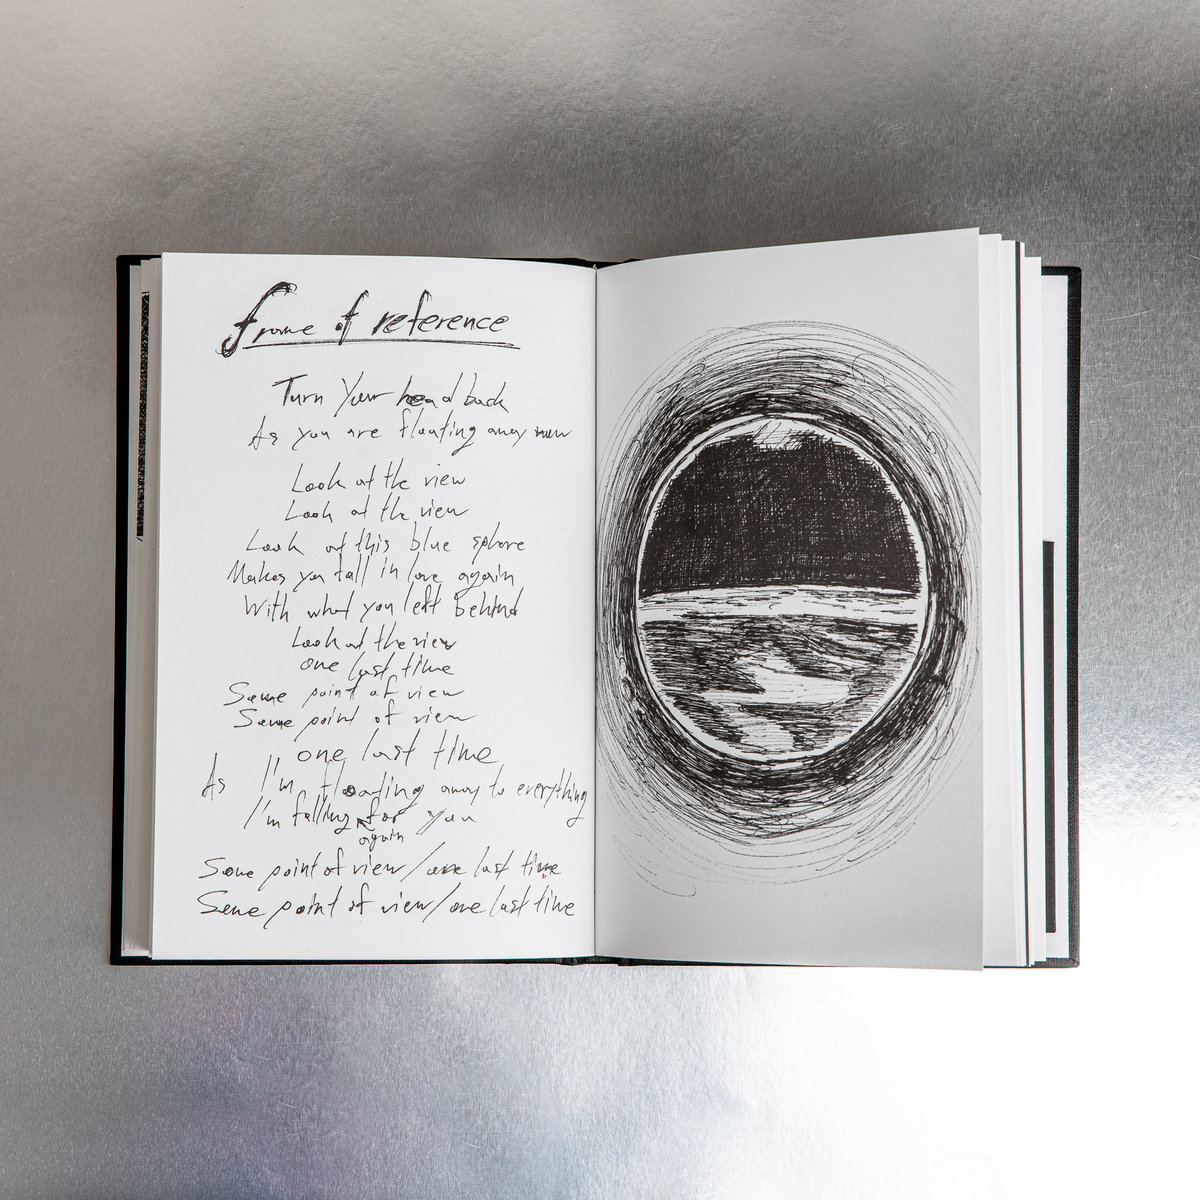 frame of reference
Turn Your head back
As you are floating away now
Look at the view
Look at the view
Look at this blue sphere
Makes you fall in love again
With what you left behind
Look at the view
one last time
Same point of view
Same point of view
one last time
As I'm floating away to everything
I'm falling for you
again
Same point of view/one last time
Same point of view/one last time